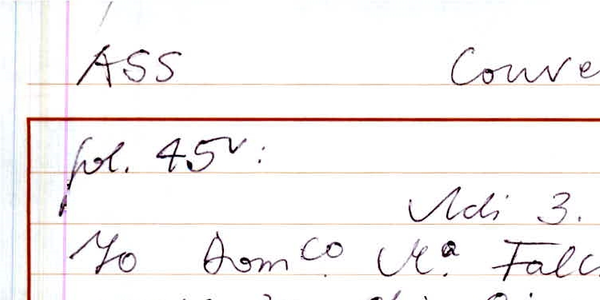 ASS Conve
fol. 45v:
Adi 3.
Io Dom.co M.a Falc